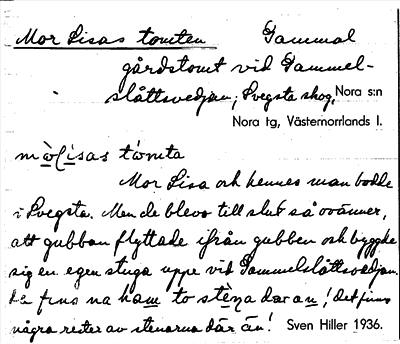 Mor Lisas tomten Gammal
gårdstomt vid Gammel-
slåttsvedjan; Svegsta skog, Nora s:n
Nora tg, Västernorrlands l.
mòlisas tómta
Mor Lisa och hennes man bodde
i Svegsta. Men de blevo till slut så ovänner,
att gubban flyttade ifrån gubben och byggde
sig en egen stuga uppe vid Gammelslåttsvedjan.
fins na ham to stèna dar an! det finns
några rester av stenarna där än! Sven Hiller 1936.